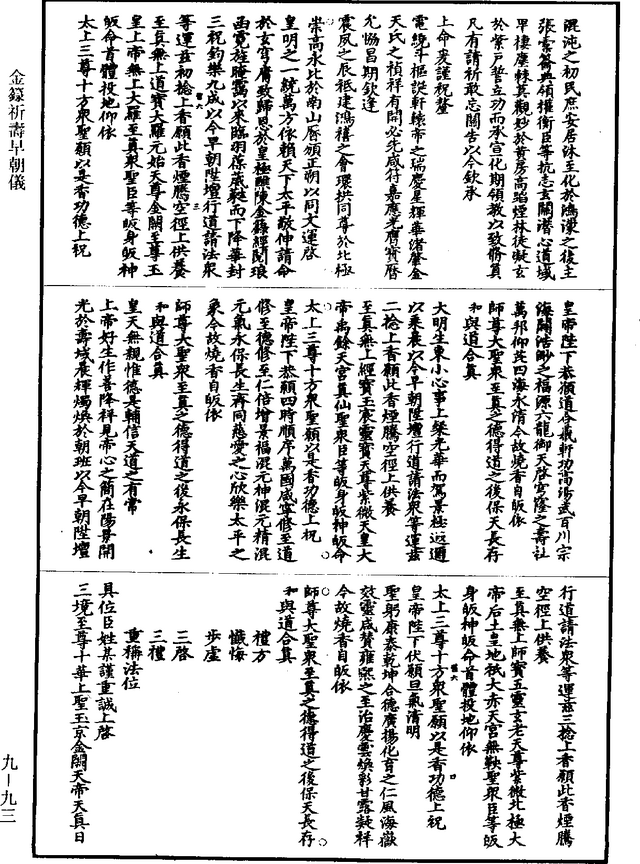 混沌之初民庶安居沐至化於鴻濛之後主
張玄籥典領權衡臣等抗志玄關潛心道域
早棲塵棘其觀妙於黃房高蹈煙林徒凝玄
於紫戶誓立功而承宣化期領教以致勝員
凡有請祈敢忘關告以今欽承
上命爰謹祝釐
電繞斗樞誕軒轅帝之瑞慶星輝華渚肇金
天氏之禎祥有開必先咸符嘉應光膺寶曆
允協昌期欽逢
震夙之辰祗建鴻禧之會環拱同尊於北極
崇高永比於南山曆頒正朔以同大運啟
皇明之一統萬方依賴天下太平敬伸請命
於玄穹庸致歸恩於皇極臚陳金籙經閱琅
函霓旌腌靄以來臨羽葆葳蕤而下降華封
三祝鈞樂九成以今早朝陞壇行道請法眾
等運茲初捻上香願此香煙騰空徑上供養
至真無上道寶大羅元始天尊金闕至尊玉
皇上帝無上大羅至真眾聖臣等皈身皈神
皈命首體投地仰依
太上三尊十方眾聖願以是香功德上祝
皇帝陛下恭願道合羲軒功高湯武百川宗
海開浩眇之福源六龍御天啟穹窿之壽社
萬邦仰芘四海永清今故燒香自皈依
師尊大聖眾至真之德得道之後保天長存
和與道合真
大明生東小心事上榮光華而駕景極遐邇
以來晨以今早朝陞壇行道請法眾等運茲
二捻上香願此香煙騰空徑上供養
至真無上經寶玉宸靈寶天尊紫微天皇大
帝禹餘天宮真仙聖眾臣等皈身皈神皈命
太上三尊十方眾聖願以是香功德上祝
皇帝陛下恭願四時順序萬國咸寧修至道
修至德修至仁倍增景福混元神混元精混
元氣永保長生齊同慈愛之心欣樂太平之
象今故燒香自皈依
師尊大聖眾至真之德得道之後永保長生
和與道合真
皇天無親惟德是輔信天道之有常
上帝好生作善降祥見帝心之簡在陽景開
光於壽域晨輝燭煥於朝班以今早朝陞壇
行道請法眾等運茲三捻上香願此香煙騰
空徑上供養
至真無上師寶五靈玄老天尊紫微北極大
帝后土皇地祇大赤天宮無鞅聖眾臣等皈
身皈神皈命首體投地仰依
太上三尊十方眾聖願以是香功德上祝
皇帝陛下伏願旦氣清明
聖躬康泰乾坤合德廣揚化育之仁風海嶽
效靈咸贊雍熙之至治慶雲煥彩甘露凝祥
今故燒香自皈依
師尊大聖眾至真之德得道之後保天長存
和與道合真
禮方
懺悔
步虛
三啟
三禮
重稱法位
具位臣姓某謹重誠上啟
三境至尊十華上聖玉京金闕天帝天真日
金籙祈壽早朝儀
九－九三